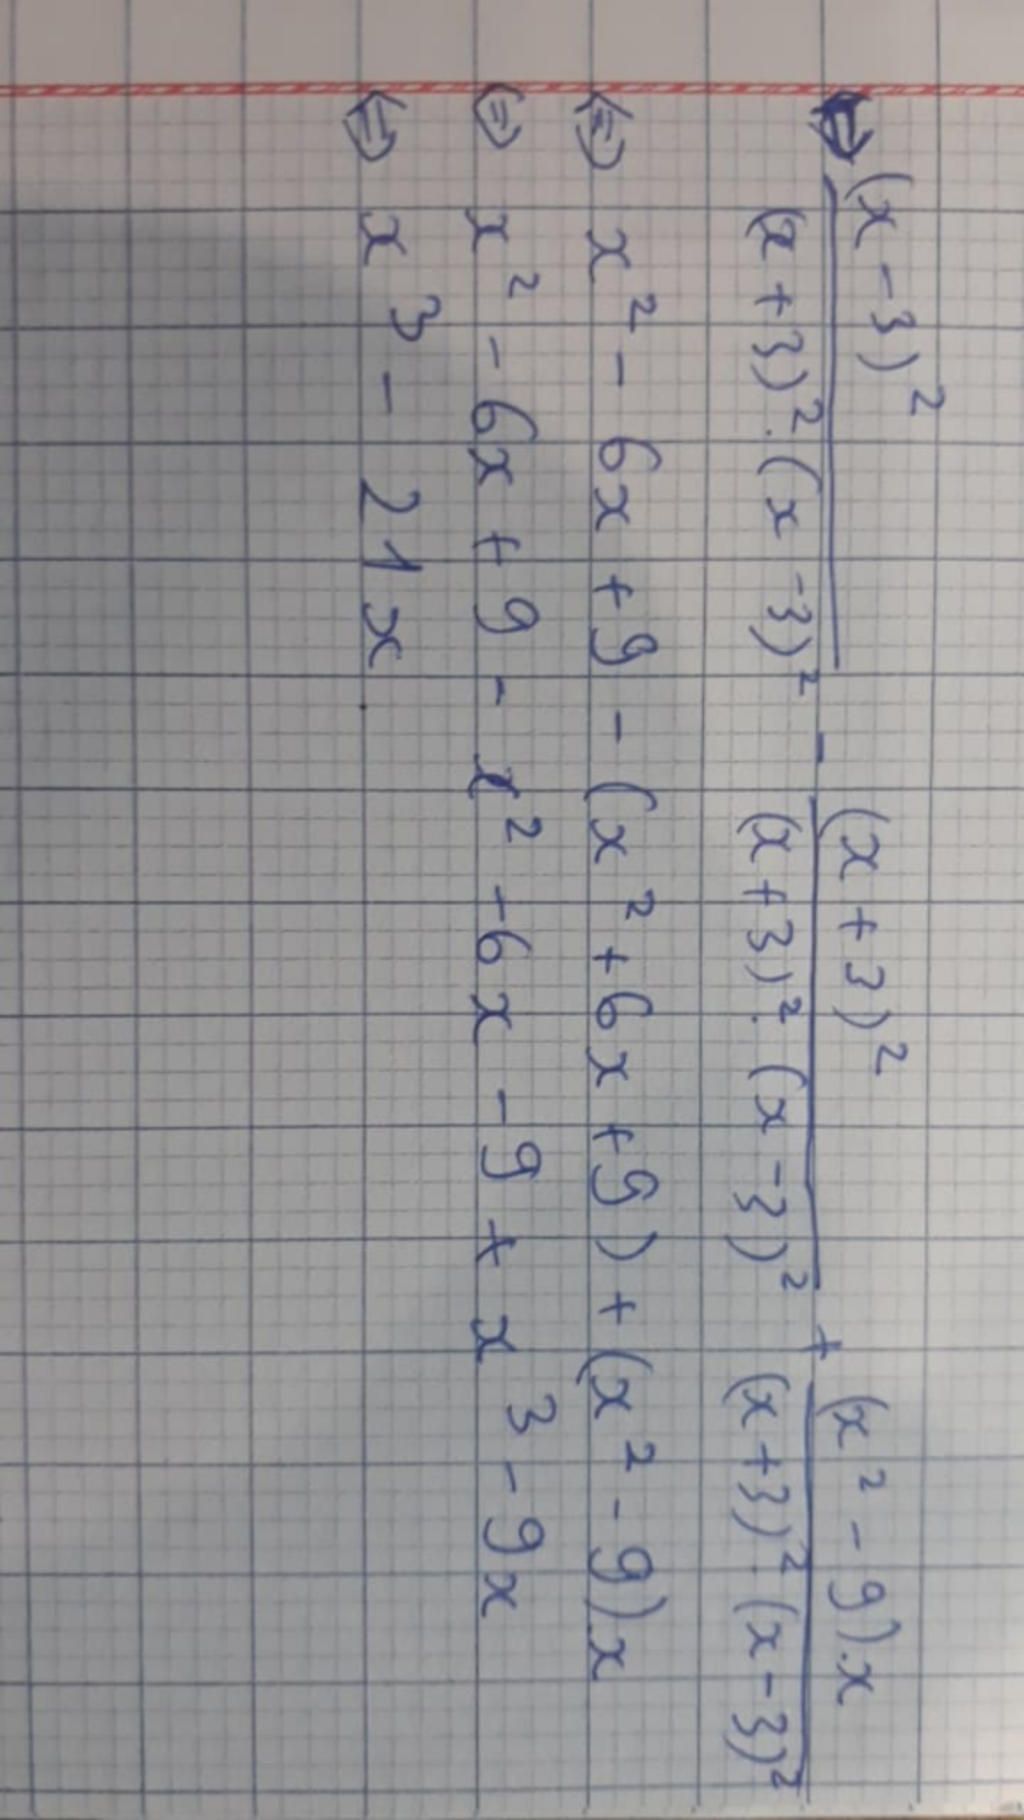 ⇔ (x - 3)² / (x + 3)² . (x - 3)² - (x + 3)² / (x + 3)² . (x - 3)² + (x² - 9) . x / (x + 3)² . (x - 3)²
⇔ x² - 6x + 9 - (x² + 6x + 9) + (x² - 9) x
⇔ x² - 6x + 9 - x² - 6x - 9 + x³ - 9x
⇔ x³ - 21x